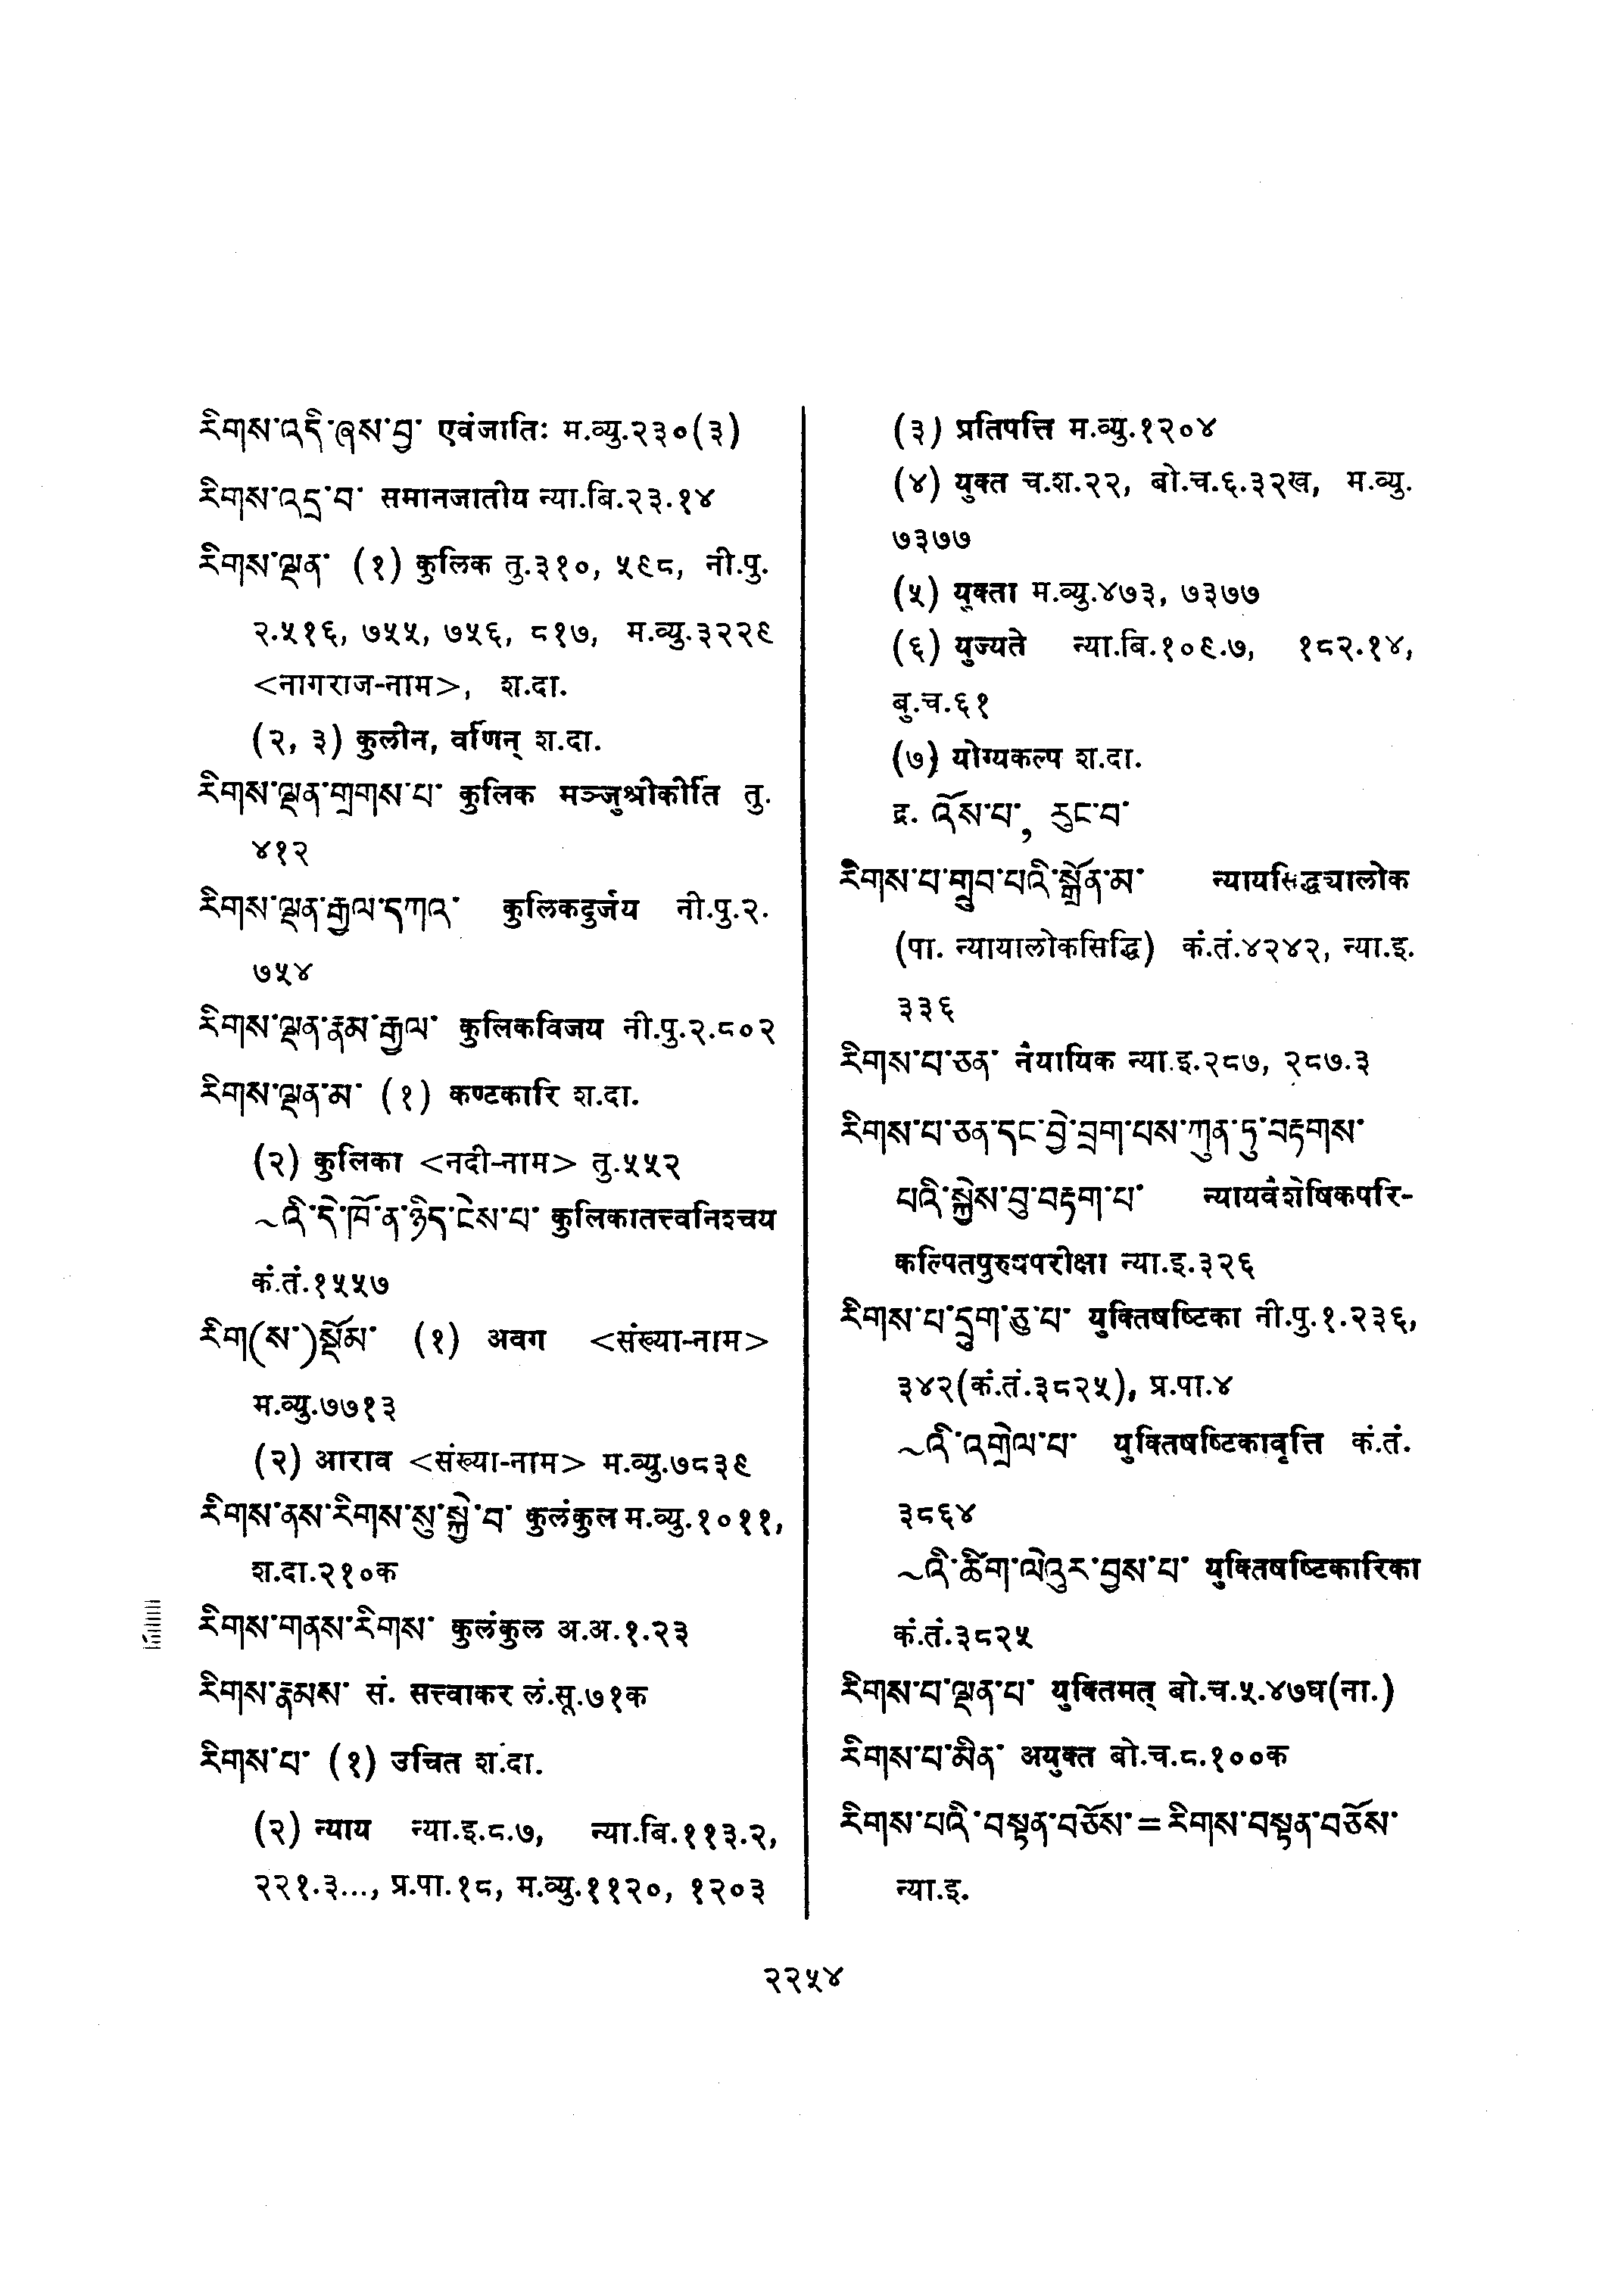 རིགས་འདི་ཞས་བྱ་ एवंजातिः म.व्यु.२३०(३)
རིགས་འདྲ་བ་ समानजातीय न्या.बि.२३.१४
རིགས་ལྡན་ (१) कुलिक तु.३१०, ५९८, नी.पु.
२.५१६, ७५५, ७५६, ८१७, म.व्यु.३२२९
<नागराज-नाम>, श.दा.
(२, ३) कुलीन, वर्णिन् श.दा.
རིགས་ལྡན་གྲགས་པ་ कुलिक मञ्जुश्रीकीर्ति तु.
४१२
རིགས་ལྡན་རྒྱལ་དཀའ་ कुलिकदुर्जय नी.पु.२.
७५४
རིགས་ལྡན་རྣམ་རྒྱལ་ कुलिकविजय नी.पु.२.८०२
རིགས་ལྡན་མ་ (१) कण्टकारि श.दा.
(२) कुलिका <नदी-नाम> तु.५५२
~འི་དེ་ཁོ་ན་ཉིད་ངེས་པ་ कुलिकातत्त्वनिश्चय
कं.तं.१५५७
རིག(ས་)སྡོམ་ (१) अवग <संख्या-नाम>
म.व्यु.७७१३
(२) आराव <संख्या-नाम> म.व्यु.७८३९
རིགས་ནས་རིགས་སུ་སྐྱེ་བ་ कुलंकुल म.व्यु.१०११,
श.दा.२१०क
རིགས་གནས་རིགས་ कुलंकुल अ.अ.१.२३
རིགས་རྣམས་ सं. सत्त्वाकर लं.सू.७१क
རིགས་པ་ (१) उचित श.दा.
(२) न्याय न्या.इ.८.७, न्या.बि.११३.२,
२२१.३..., प्र.पा.१८, म.व्यु.११२०, १२०३
(३) प्रतिपत्ति म.व्यु.१२०४
(४) युक्त च.श.२२, बो.च.६.३२ख, म.व्यु.
७३७७
(५) युक्ता म.व्यु.४७३, ७३७७
(६) युज्यते न्या.बि.१०९.७, १८२.१४,
बु.च.६१
(७) योग्यकल्प श.दा.
द्र. འོས་པ་, རུང་བ་
རིགས་པ་གྲུབ་པའི་སྒྲོན་མ་ न्यायसिद्ध्यालोक
(पा. न्यायालोकसिद्धि) कं.तं.४२४२, न्या.इ.
३३६
རིགས་པ་ཅན་ नैयायिक न्या.इ.२८७, २८७.३
རིགས་པ་ཅན་དང་བྱེ་བྲག་པས་ཀུན་ཏུ་བརྟགས་
པའི་སྐྱེས་བུ་བརྟག་པ་ न्यायवैशेषिकपरि-
कल्पितपुरुषपरीक्षा न्या.इ.३२६
རིགས་པ་དྲུག་ཅུ་པ་ युक्तिषष्टिका नी.पु.१.२३६,
३४२(कं.तं.३८२५), प्र.पा.४
~འི་འགྲེལ་པ་ युक्तिषष्टिकावृत्ति कं.तं.
३८६४
~འི་ཚིག་ལེའུར་བྱས་པ་ युक्तिषष्टिकारिका
कं.तं.३८२५
རིགས་པ་ལྡན་པ་ युक्तिमत् बो.च.५.४७घ(ना.)
རིགས་པ་མིན་ अयुक्त बो.च.८.१००क
རིགས་པའི་བསྟན་བཅོས་=རིགས་བསྟན་བཅོས་
न्या.इ.
२२५४